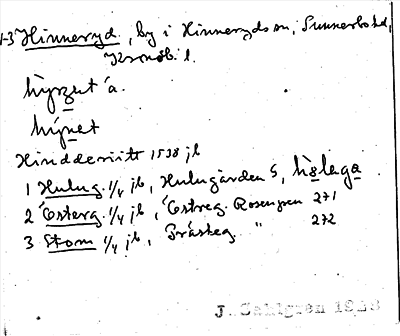 1-3 Hinneryd, by i Hinneryds sn, Sunnerbo hd,
Kronob. l.
hìnet
Hindderiitt 1538 jb
1 Hulug. 1/4 jb, Hulugården S, hs̀laga
2 Österg. 1/4 jb, Östreg. Rosengren 271
3 Stom 1/4 jb, Prästeg. " 272
J. Sahlgren 1928